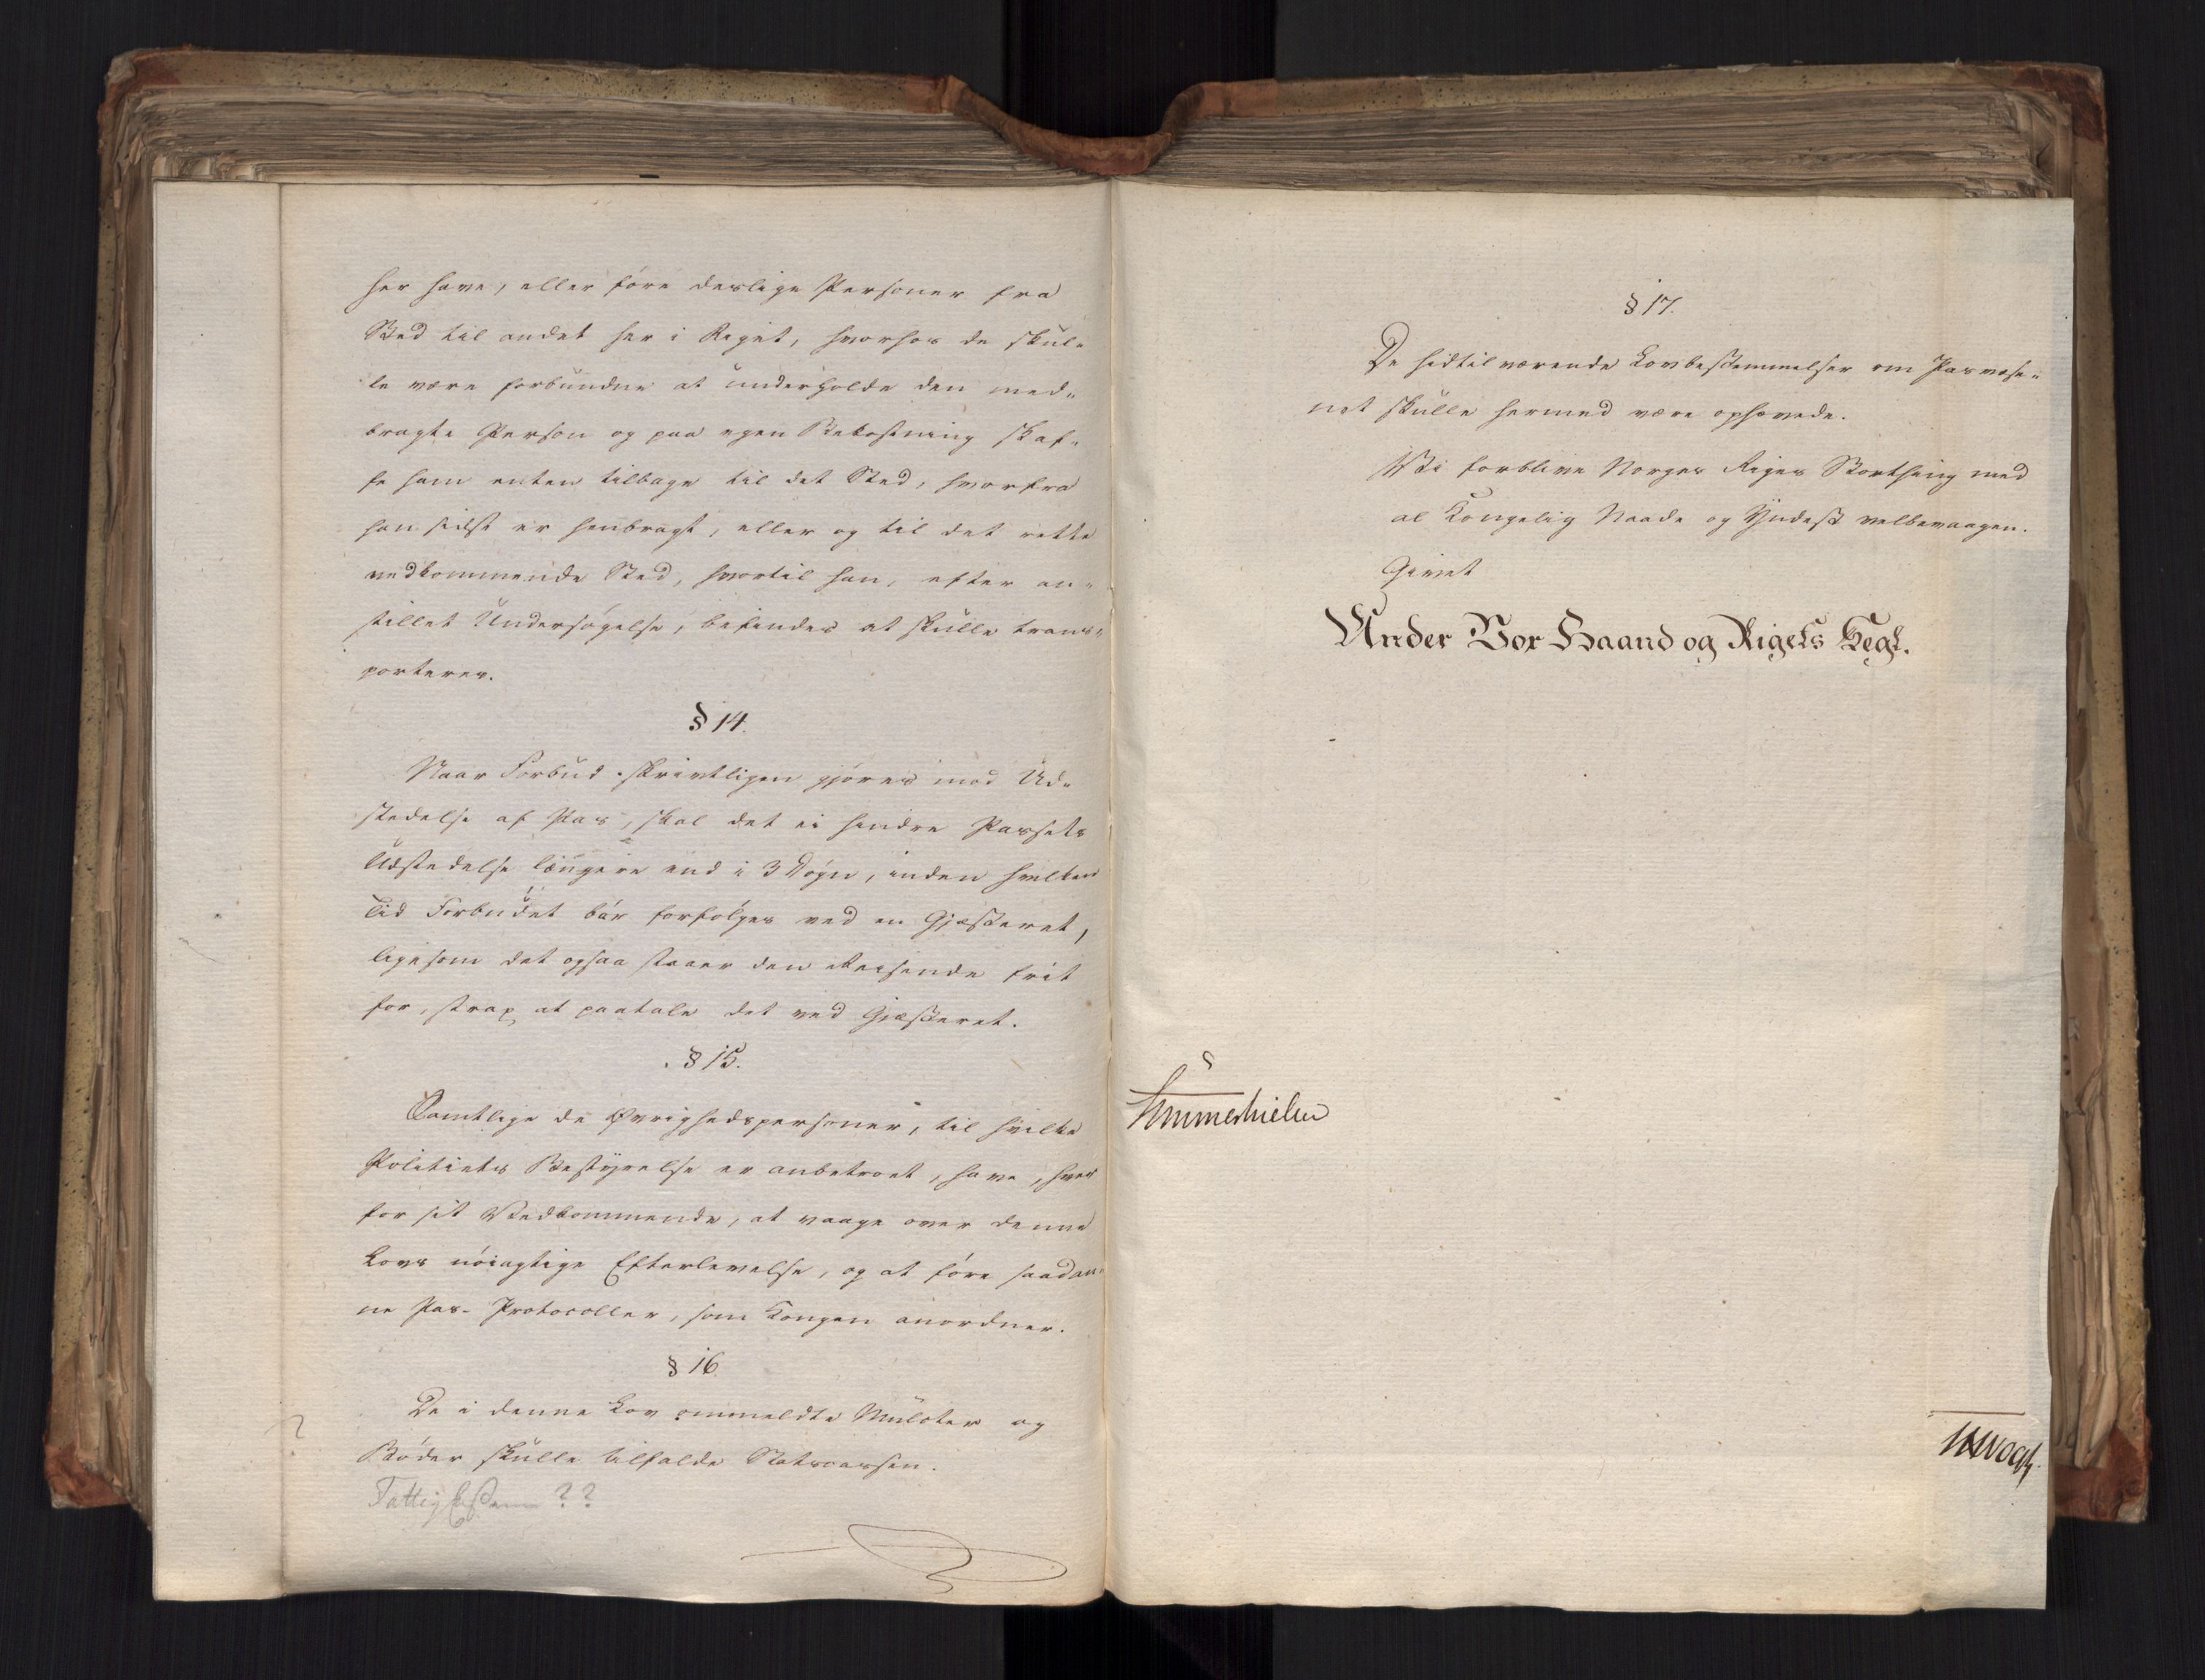 her have, eller føre deslige Personer fra
Sted til andet her i Riget, hvorhos de skul-
le være forbundne at underholde den med-
bragte Person og paa egen Bekostning skaf-
fe ham enten tilbage til det Sted, hvorfra
han sidst er henbragt, eller og til det rette
vedkommende Sted, hvortil han, efter an-
stillet Undersøgelse, befindes at skulle trans-
porteres.
§ 14.
Naar Forbud skrivtligen gjøres mod Ud-
stedelse af Pas, skal det ei hindre Passets
Udstedelse længere end i 3 Døgn, inden hvilken
Tid Forbudet bør forfølges ved en Gjæsteret,
ligesom det ogsaa staaer den Reisende frit
for, strax at paatale det ved Gjæsteret.
§ 15.
Samtlige de Øvrighedspersoner, til hvilke
Politiets Bestyrelse er anbetroet, have, hver
for sit Vedkommende, at vaage over denne
Lovs nøiagtige Efterlevelse, og at føre saadan-
ne Pas-Protocoller, som Kongen anordner.
§ 16.
De i denne Lov ommeldte Mulcter og
?
Bøder skulle tilfalde Statscassen.
??
§ 17.
De hidtilværende Lovbestemmelser om Pasvæse-
net skulle hermed være ophævede.
Vi forblive Norges Riges Storthing med
al Kongelig Naade og Yndest velbevaagen.
Givet
Under Vor Haand og Rigets Segl.
Sommerhielm